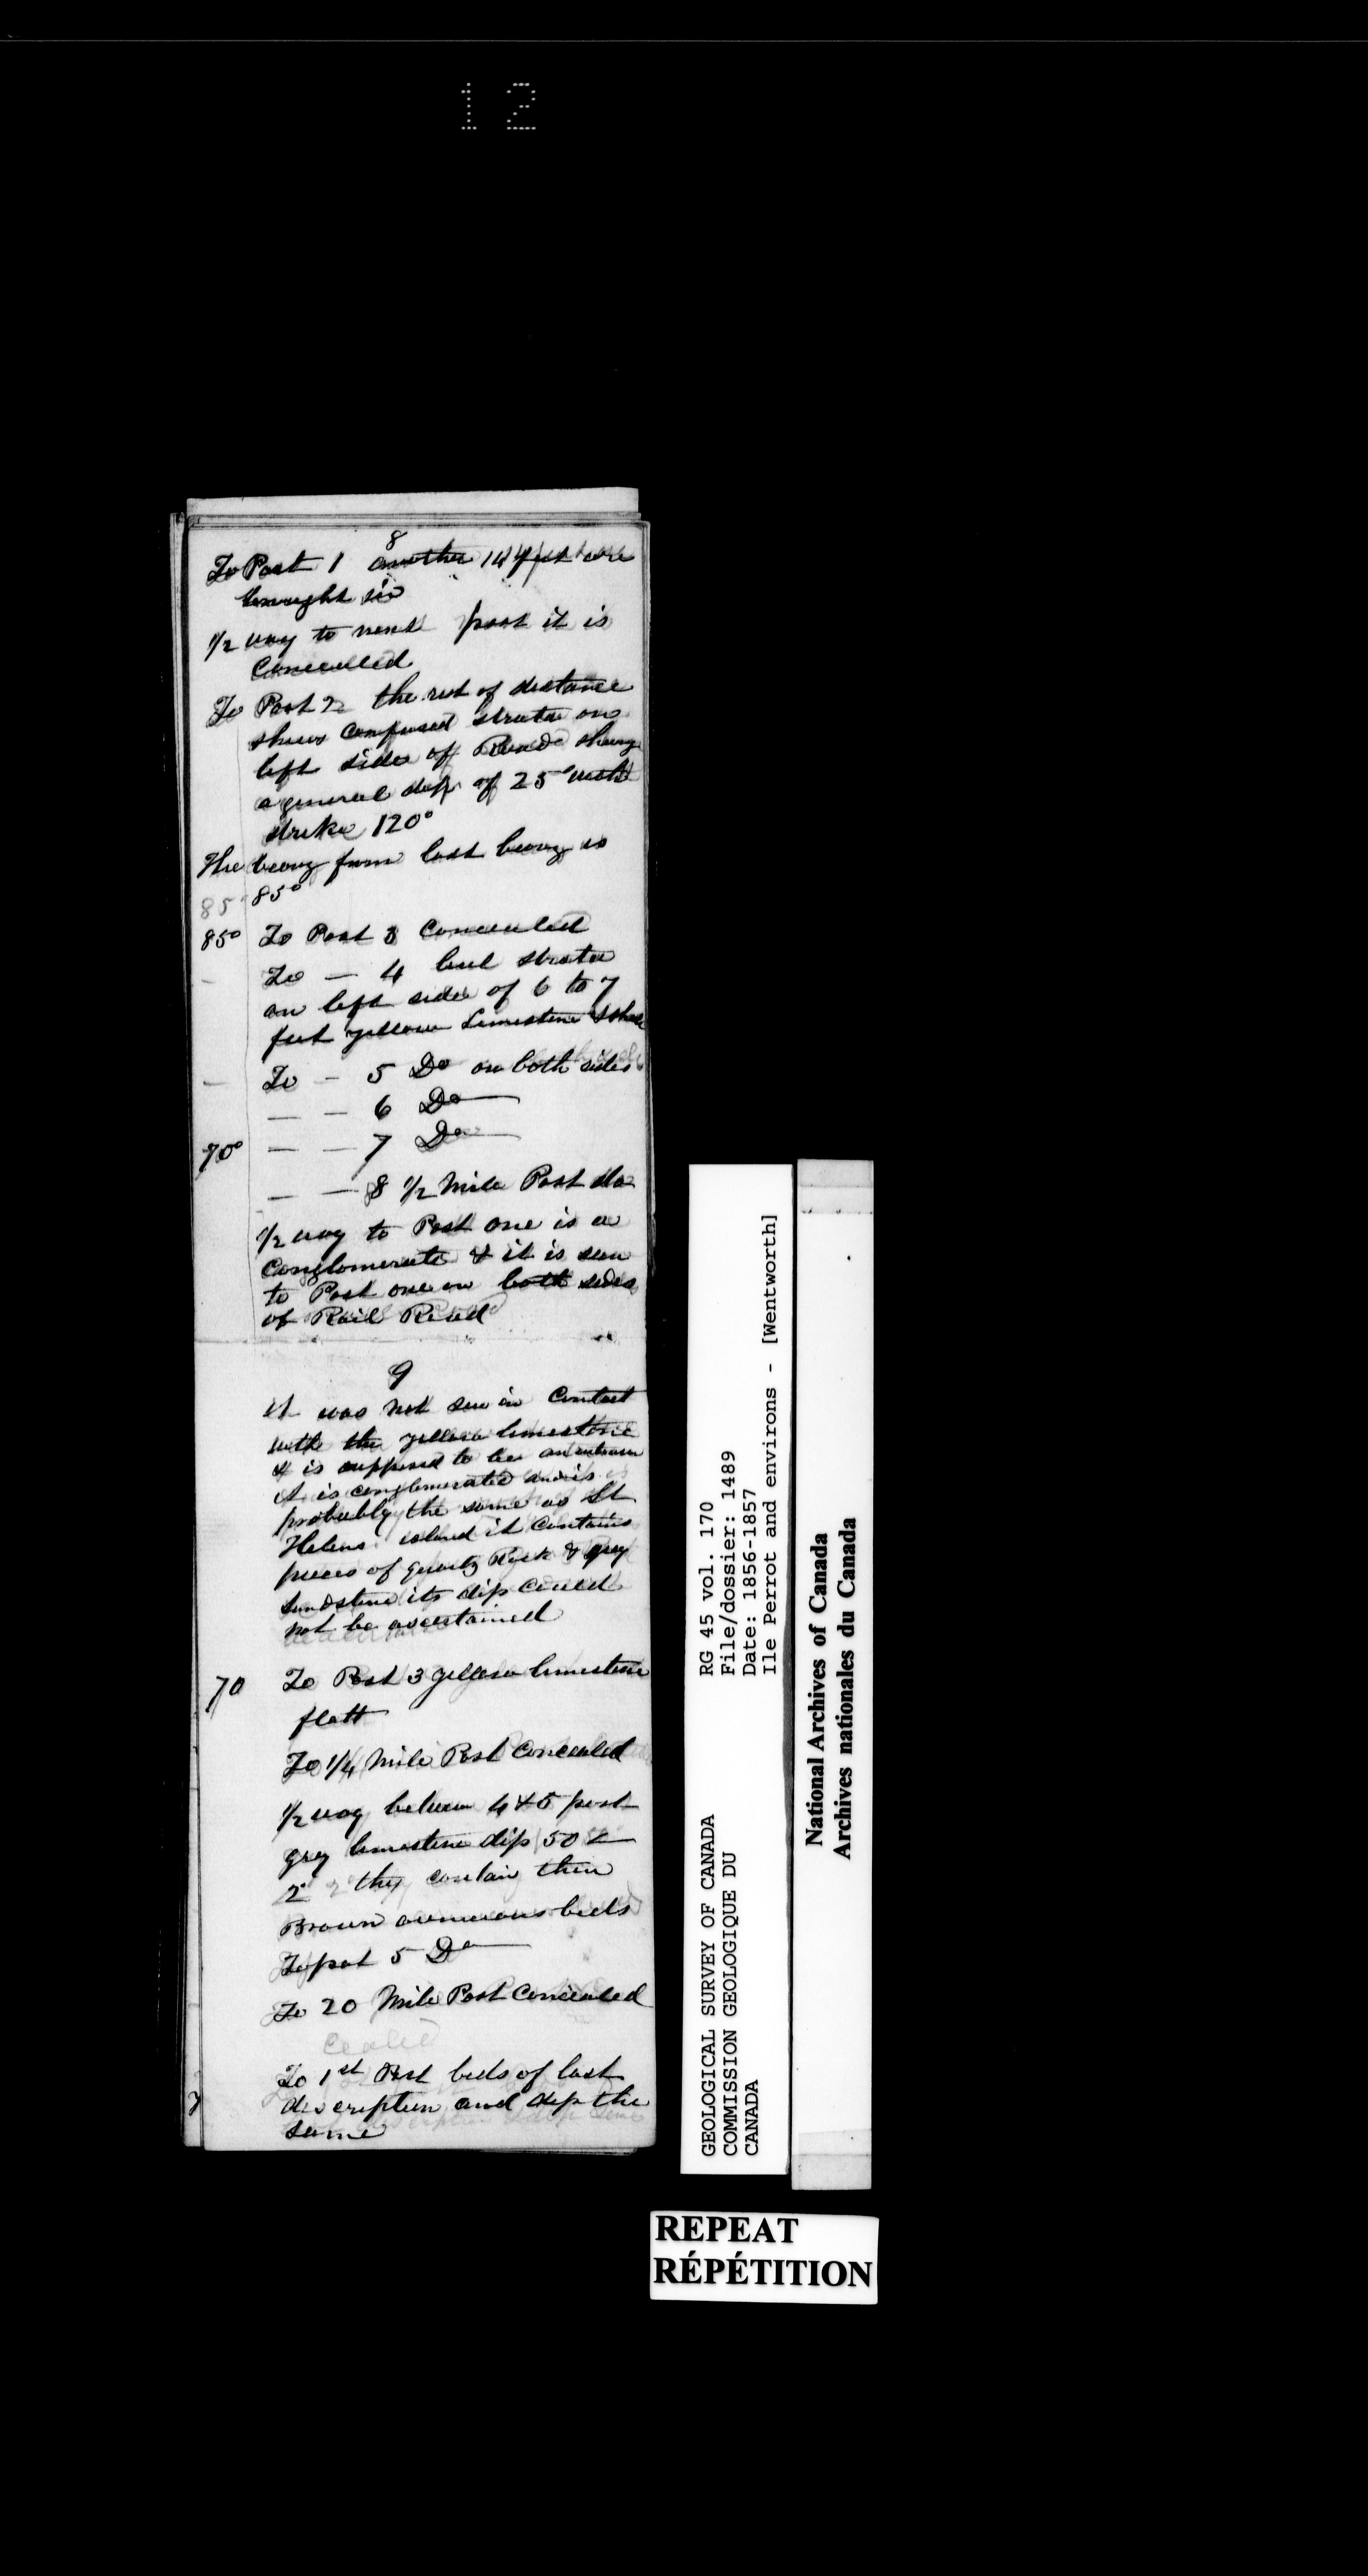 12
8
To Post 1 another 14 feet are
brought in
1/2 way to next post it is
Concealed
To Post 2 the rest of distance
shews confused strata on
left side of Road shewg
a general dip of 25° with
strike 120°
The bearg from last bearg is
85° 85°
85° To Post 3 Concealed
- To — 4 level strata
on left side of 6 to 7
feet yellow Limestone & shale
— To - 5 Do on both sides
— — 6 Do
70° — — 7 Do
— — 8 1/2 Mile Post do
1/2 way to Post one is a
Conglomerate & it is seen
to Post one on both sides
of Rail Road
9
it was not seen in Contact
with the yellow limestone
& is supposed to be an
it is conglomerated and is
probably the same as St
Helens island it contains
pieces of quartz Rock & grey
sandstone its dip could
not be ascertained
70 To Post 3 yellow limestone
flatt
To 1/4 Mile Post Concealed
1/2 way between 4 & 5 post
grey limestone dip 50 <
2° 2° they contain thin
Brown arenaceous beds
To post 5 Do
To 20 Mile Post Concealed
cealed
To 1st Post beds of last
description and dip the
same
RG 45 vol. 170
File/dossier: 1489
Date: 1856-1857
Ile Perrot and environs - [Wentworth]
GEOLOGICAL SURVEY OF CANADA
COMMISSION GEOLOGIQUE DU
CANADA
National Archives of Canada
Archives nationales du Canada
REPEAT
RÉPÉTITION